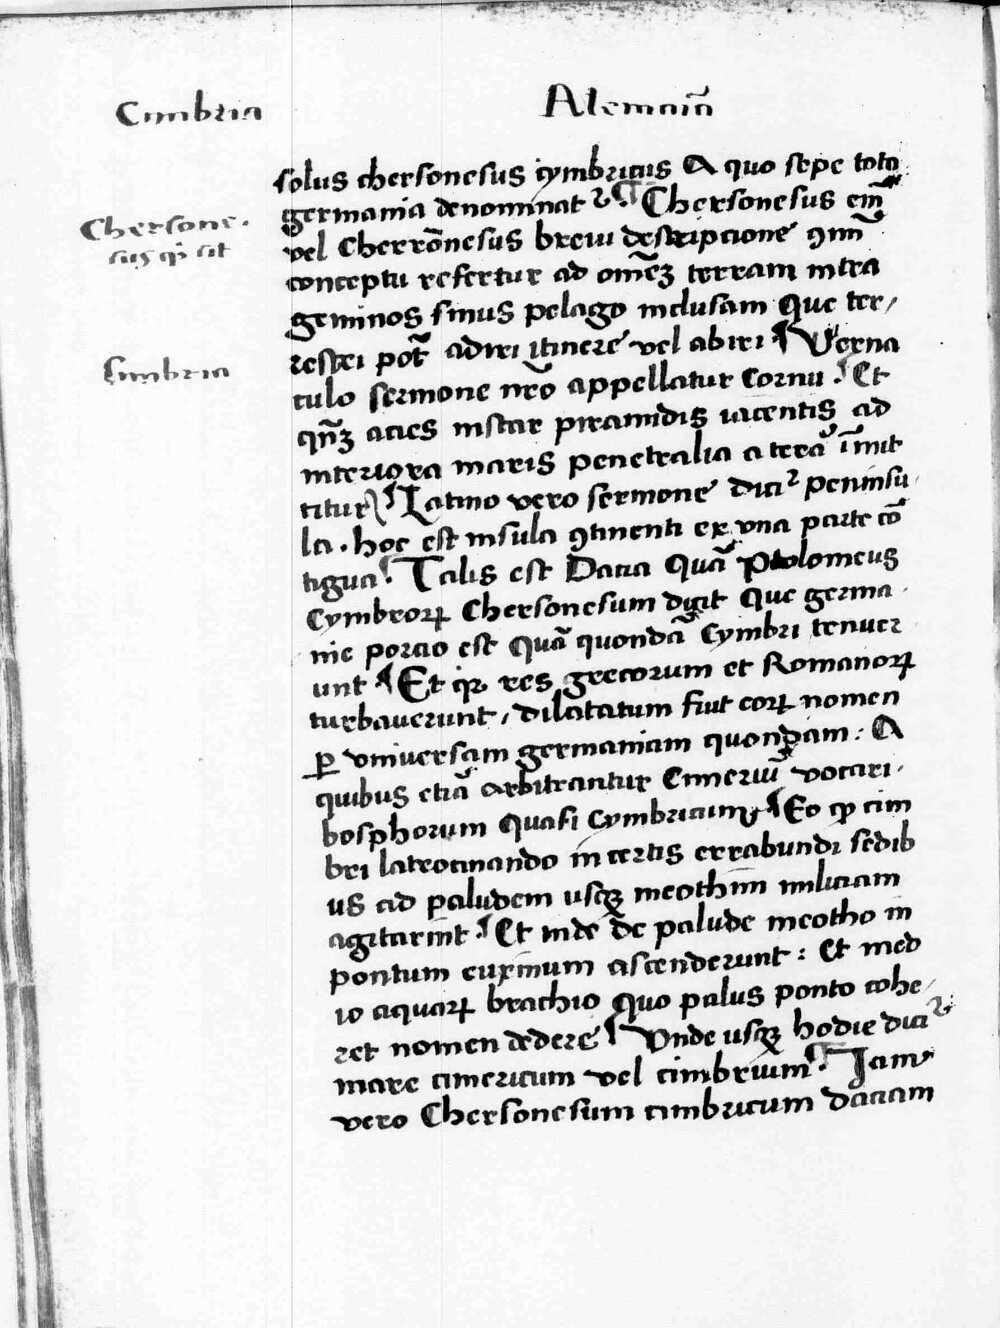 Cimbria
Alemaīa
solus chersonesus cymbricus A quo sepe tota
germania denominat᷑ . ¶ Chersonesus em̄
Chersone.
vel Cherrōnesus breui descripcione ꝯmī
sus qͥd sit
conceptu refertur ad om̄eꝫ terram intra
geminos sinus pelago inclusam Que ter/
restri pōt adiri itinere vel abiri ¶ Verna
Simbria
culo sermone nr̄o appellatur Cornu . ¶ Et
qn̄ꝫ acies instar piramidis iacentis ad
interiora maris penetralia a terā īmit
titur ¶ Latino vero sermone dici᷑ Peninsu
la . hoc est insula ꝯtinenti ex vna parte cō
tigua . ¶ Talis est Dacia Quā Ptolomeus
Cymbroꝝ Chersonesum dixit Que germa
nie porcio est Quā quondā Cymbri tenuer
unt ¶ Et qꝛ res grecorum et Romanoꝝ
turbauerunt / dilatatum fiut eoꝝ nomen
ꝑ vniuersam germaniam quondam : A
quibus etiā arbitrantur Cimeriū vocari
bosphorum Quasi Cymbricum ¶ Eo ꝙ cim
bri latrocinando incertis errabundi sedib
us ad paludem usqꝫ meothim miliciam
agitarint . ¶ Et inde de palude meotho in
pontum euxinum ascenderunt : Et med
io aquaꝝ brachio Quo palus ponto cohe/
ret nomen dedere ¶ Vnde usqꝫ hodie dici᷑
mare cimericum vel cimbrium . ¶ Iam
vero Chersonesum cimbricum daciam